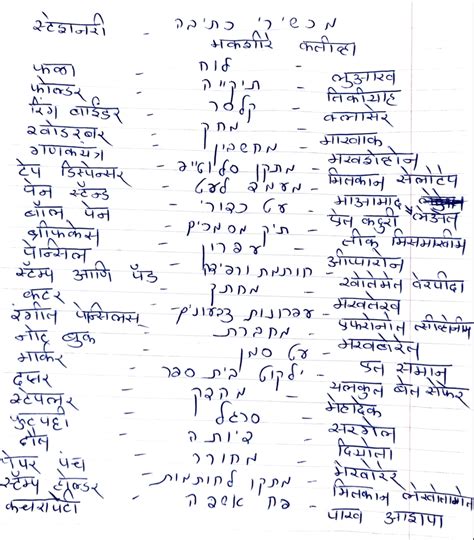 स्टेशनरी - מכשירי כתיבה
मकशीरे कतीव्हा
फळा - לוח - लुआख
फोल्डर - תיקייה - तिकीयाह
रिंग बाईंडर - קלסר - क्लासेर
खोडरबर - מחק - माखाक
गणकयंत्र - מחשבון - मखशेहोन
टेप डिस्पेन्सर - מתקן סלוטייפ - मितकान सेलोटेप
पेन स्टॅन्ड - מעמד לעט - माआमाद लेईत
बॉल पेन - עט כדורי - एत कदुरी
ब्रीफकेस - תיק מסמכים - तीक मिसमाखीम
पेन्सिल - עפרון - आप्पारोन
स्टॅम्प आणि पॅड - חותמת וכרית - खोतेमेत वेरपीदा
कटर - מחתך - मखतेख
रंगीत पेन्सिलस - עפרונות צבעוניים - इफरोनोत त्सीव्होनीम
नोट बुक - מחברת - मखबारेत
मार्कर - עט סמן - इत समान
दप्तर - ילקוט בית ספר - यलकुत बेत सेफेर
स्टेपलर - מהדק - मेहादेक
फुटपट्टी - סרגל - सरगेल
दौत - דיותה - दियोता
पेपर पंच - מחורר - मेखोरेर
स्टॅम्प होल्डर - מתקן לחותמות - मितकान लेखोतामोत
कचरापेटी - פח אשפה - पाख आशपा